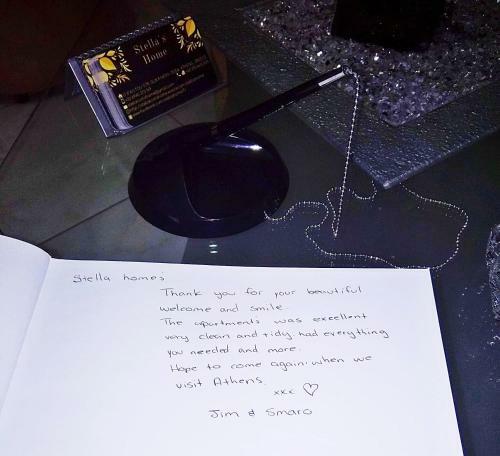 Stella's
Home
Stella homes
Thank you for your beautiful
welcome and smile
The apartments was excellent
very clean and tidy. had everything
you needed and more.
Hope to come again. when we
visit Athens.
xxx ♡
Jim & Smaro